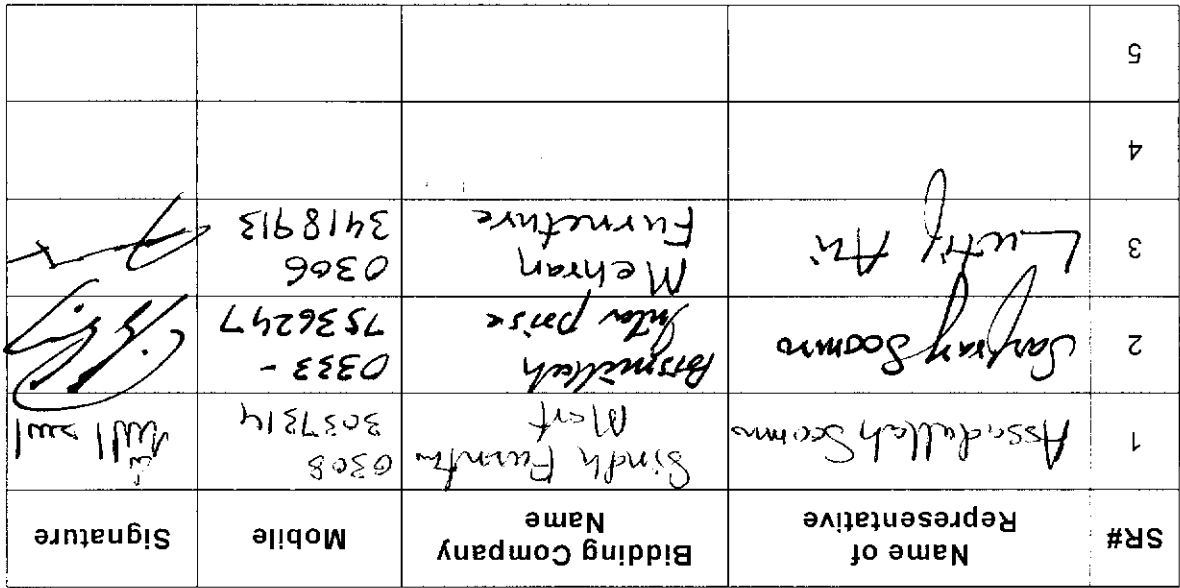 SR#
Name of
Representative
Bidding Company
Name
Mobile
Signature
1
Assadullah Soomro
Sindh Furnitu
Mart
0308
3037314
اسد اللہ
2
Sarfraz Soomro
Bismillah
Inter prise
0333 -
7536247
3
Lutif Ali
Mehran
Furneture
0306
3418913
4
5